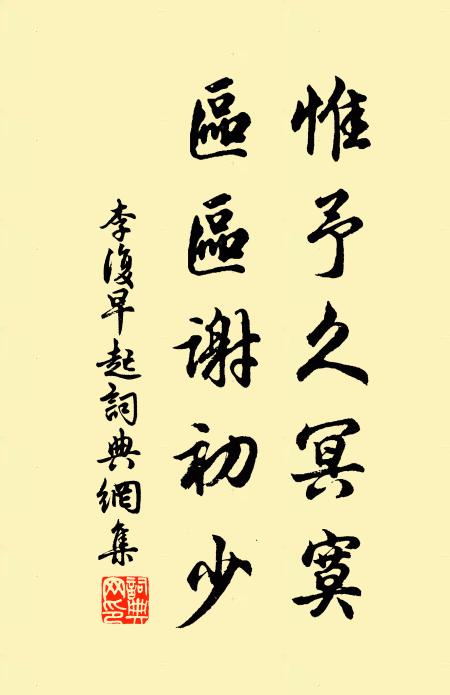 惟予久冥寞
區區謝初少
李復早起詞典網集
詞典網印